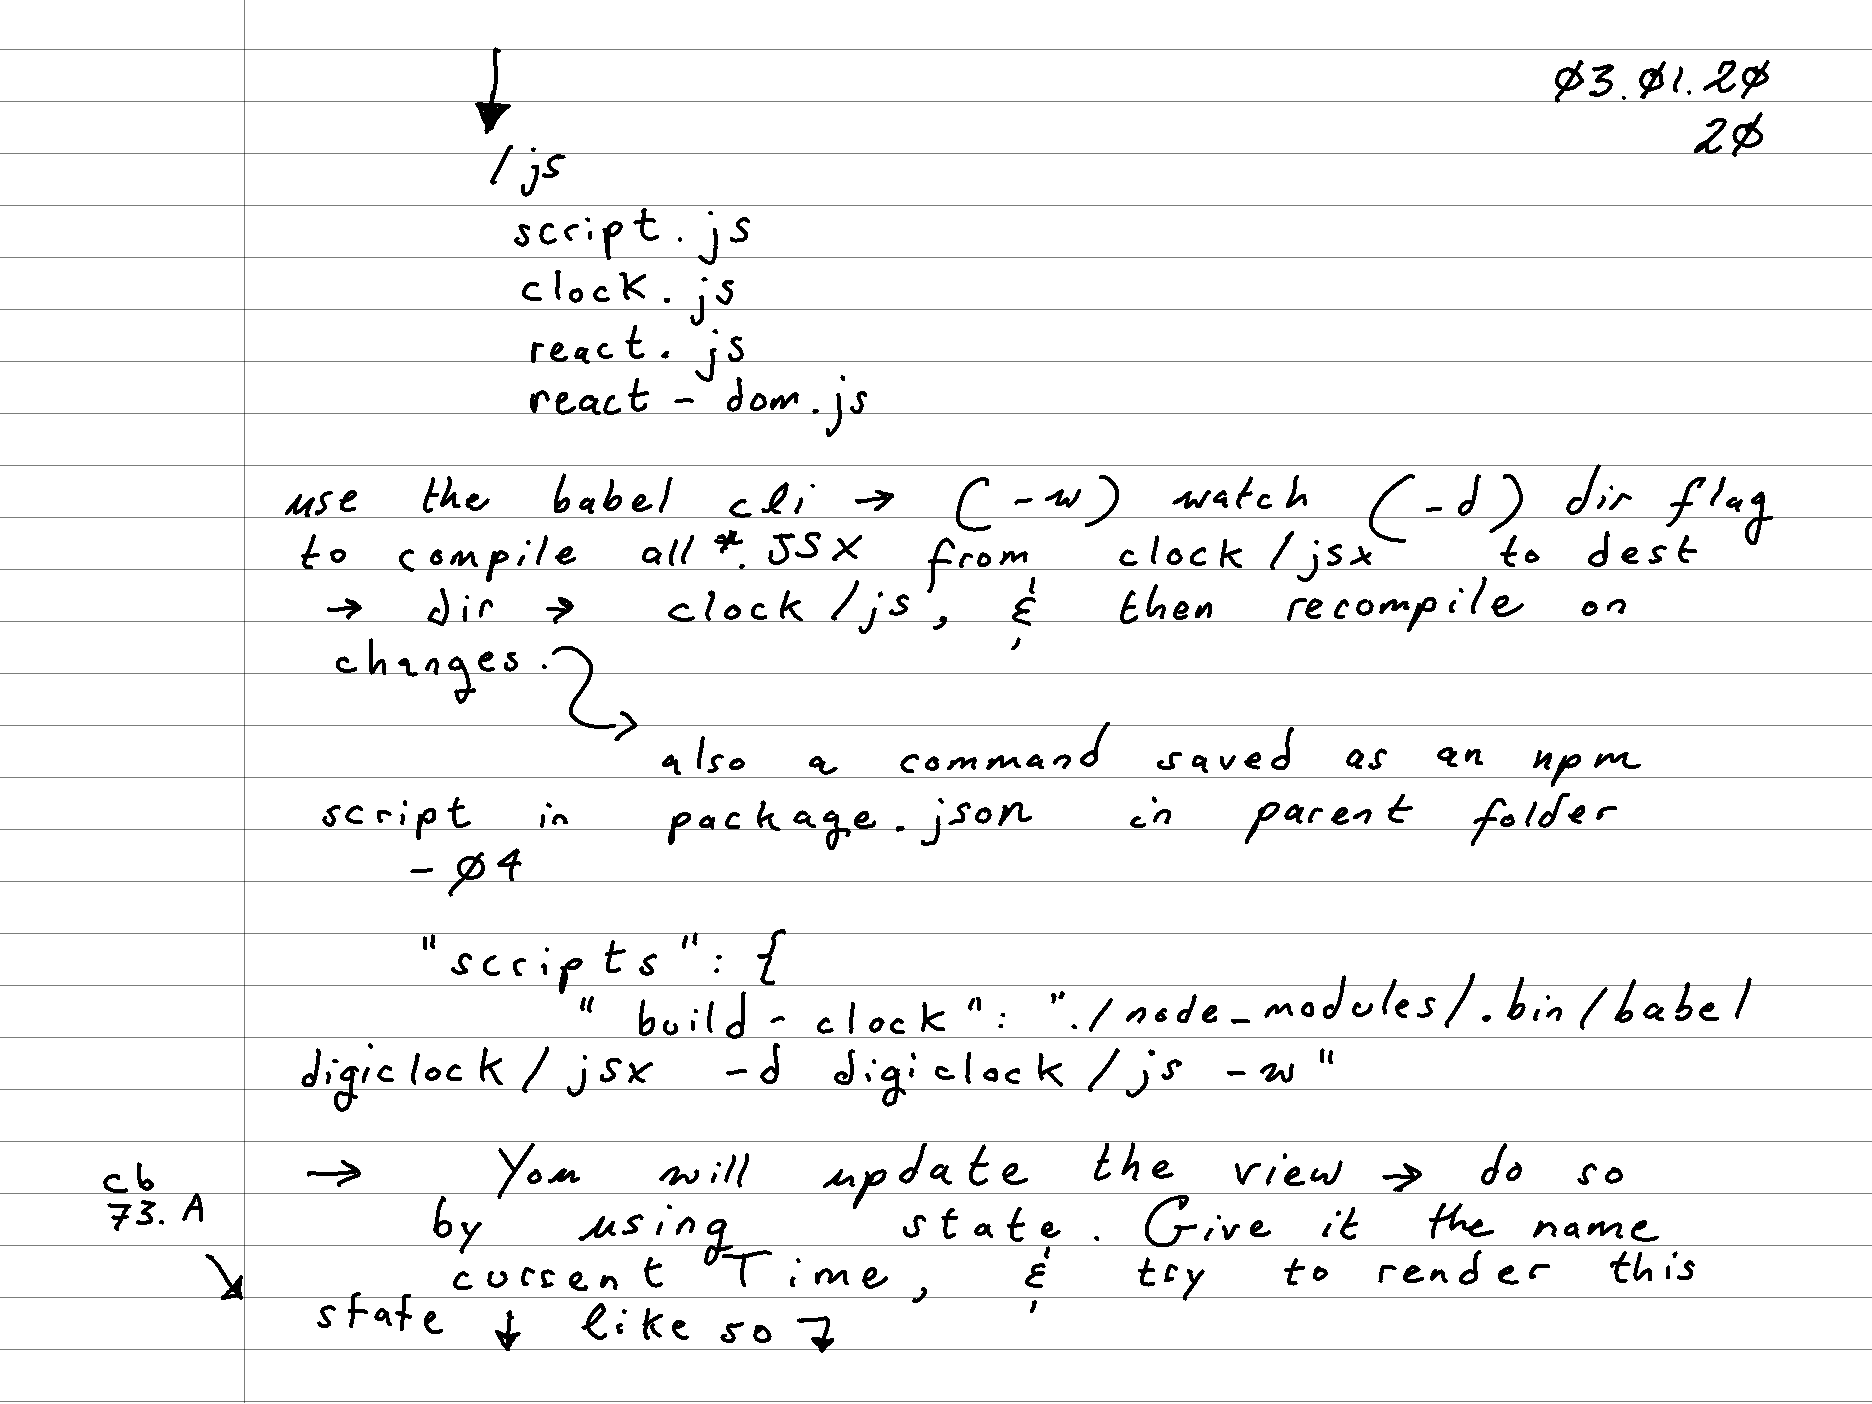 ↓
03.01.20
20
/js
script.js
clock.js
react.js
react-dom.js
use the babel cli → (-w) watch (-d) dir flag
to compile all *.JSX from clock/jsx to dest
→ dir → clock/js, & then recompile on
changes.
also a command saved as an npm
script in package.json in parent folder
- 04
"scripts": {
"build-clock": "./node_modules/.bin/babel
digiclock/jsx -d digiclock/js -w"
cb
73.A
→ You will update the view → do so
by using state. Give it the name
currentTime, & try to render this
state ↓ like so ↴